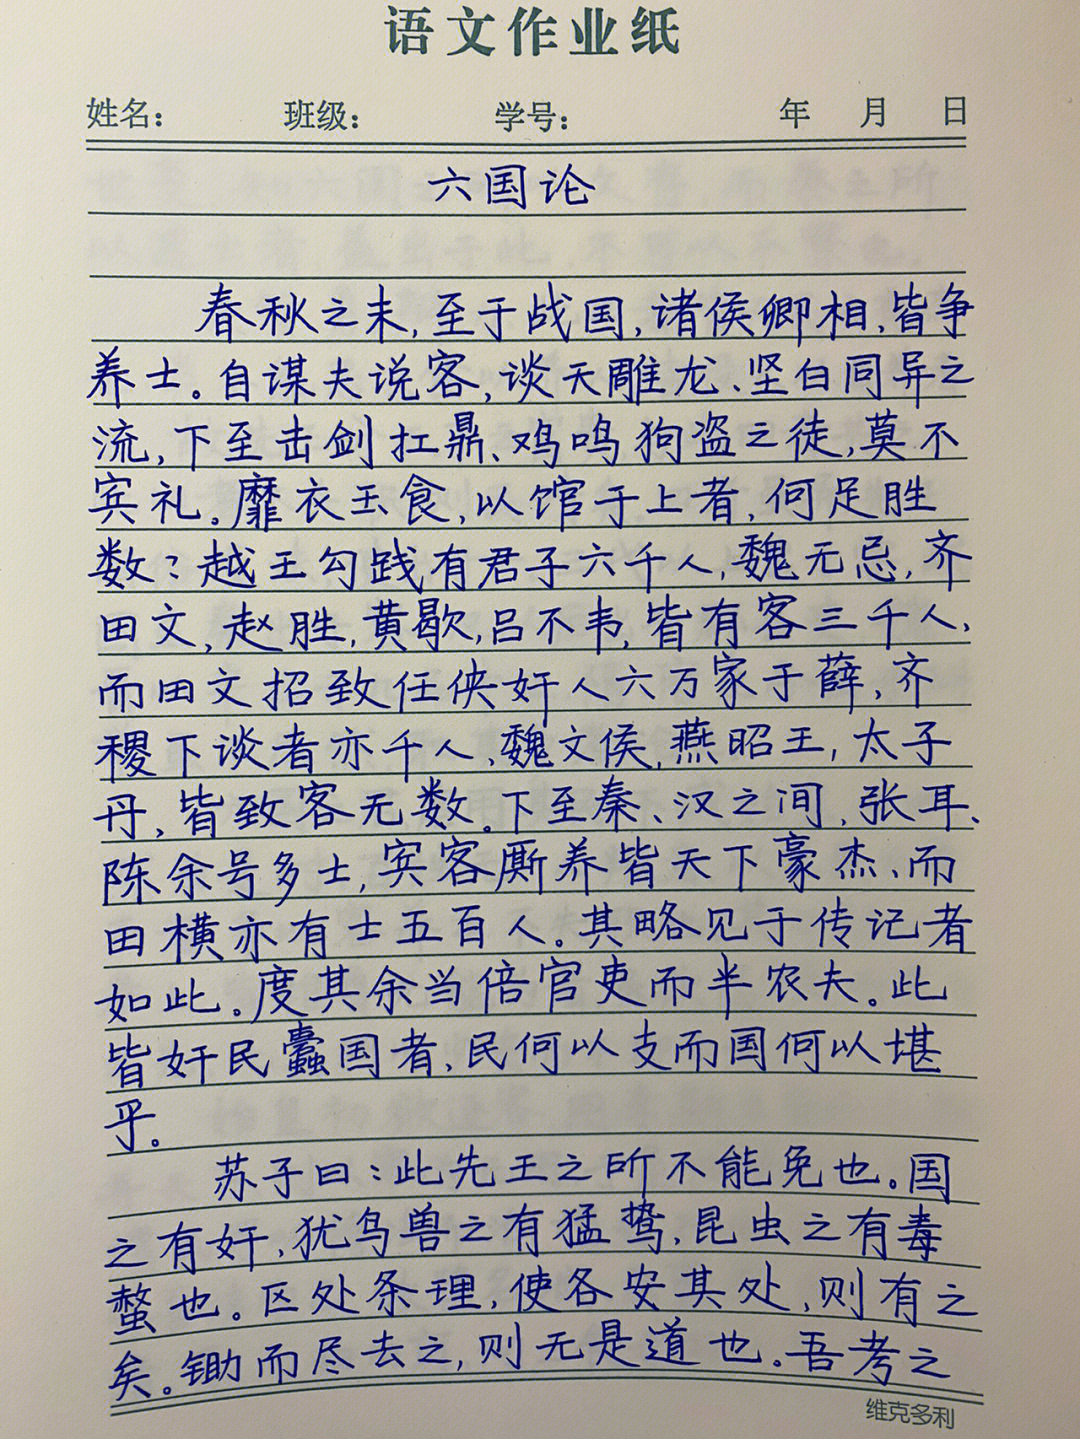 语文作业纸
姓名： 班级： 学号： 年 月 日
六国论
春秋之末，至于战国，诸侯卿相，皆争
养士。自谋夫说客，谈天雕龙、坚白同异之
流，下至击剑扛鼎、鸡鸣狗盗之徒，莫不
宾礼。靡衣玉食，以馆于上者，何足胜
数？越王勾践有君子六千人，魏无忌，齐
田文，赵胜，黄歇，吕不韦，皆有客三千人，
而田文招致任侠奸人六万家于薛，齐
稷下谈者亦千人、魏文侯，燕昭王，太子
丹，皆致客无数。下至秦、汉之间，张耳、
陈余号多士，宾客厮养皆天下豪杰、而
田横亦有士五百人。其略见于传记者
如此。度其余当倍官吏而半农夫。此
皆奸民蠹国者，民何以支而国何以堪
乎。
苏子曰：此先王之所不能免也。国
之有奸，犹鸟兽之有猛鸷，昆虫之有毒
螫也。区处条理，使各安其处，则有之
矣。锄而尽去之，则无是道也。吾考之
维克多利